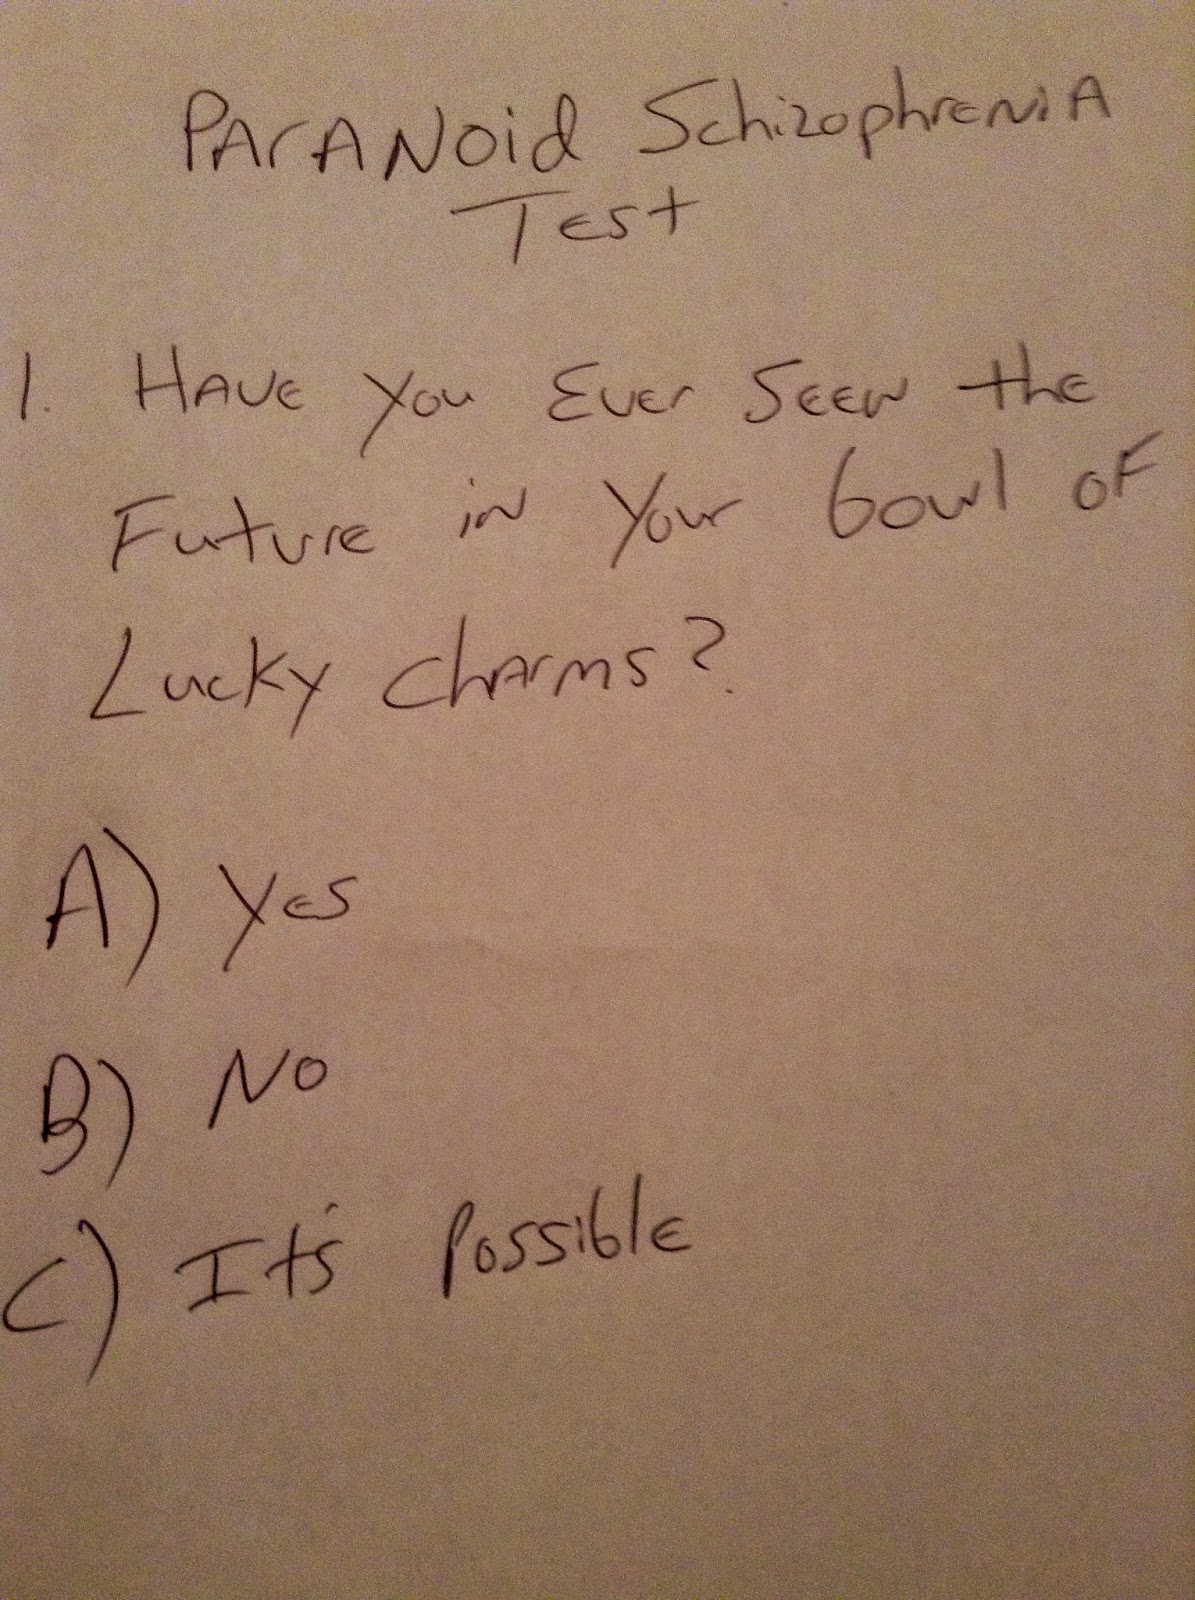 PArANoid SchizophreniA
Test
1. HAVE you Ever SEEN the
Future in Your bowl of
Lucky charms?
A) Yes
B) No
C) It's Possible